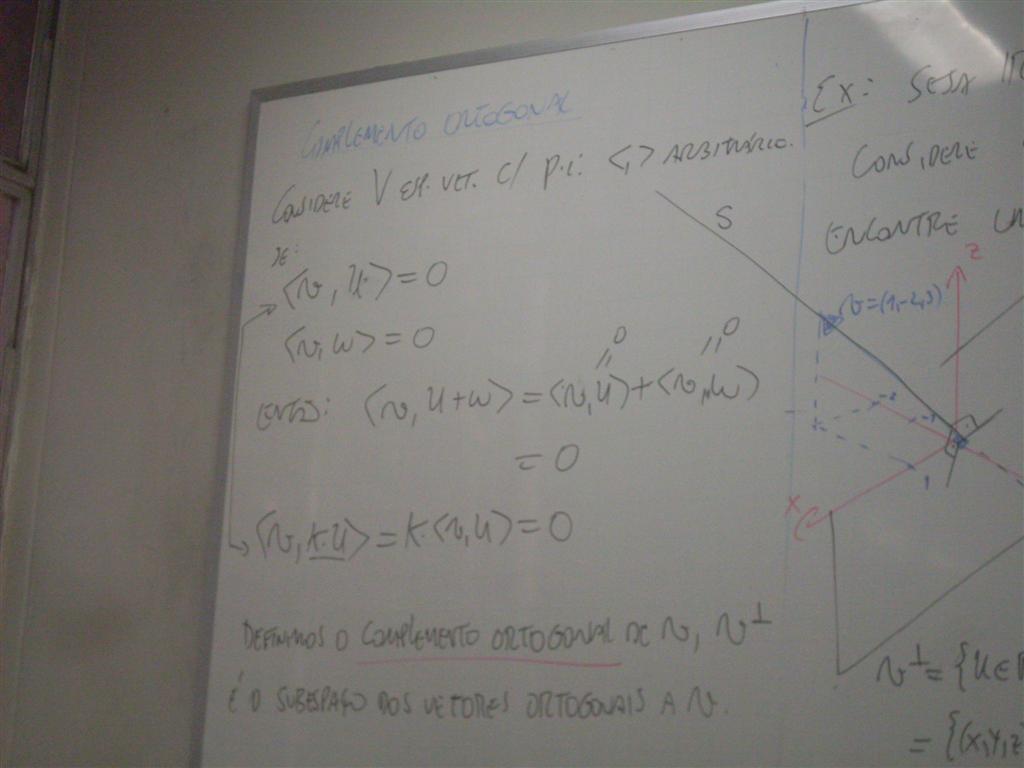 COMPLEMENTO ORTOGONAL
CONSIDERE V ESP. VET. C/ P.I. <,> ARBITRÁRIO.
SE:
<v, u> = 0
<v, w> = 0
ENTÃO: <v, u+w> = <v, u> + <v, w>
0 0
= 0
<v, k·u> = k·<v, u> = 0
DEFINIMOS O COMPLEMENTO ORTOGONAL DE v, v⊥
É O SUBESPAÇO DOS VETORES ORTOGONAIS A v.
EX: SEJA
CONSIDERE
ENCONTRE
S
z
v=(1,-2,3)
-2
-1
1
x
v⊥ = {u ∈
= {(x,y,z